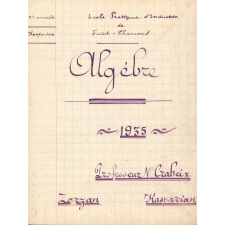 2e année
Kasparian
Ecole Pratique d'Industrie
de
Saint-Chamond
Algèbre
~ 1935 ~
Professeur Mr Craheix
Zorzan Kasparian